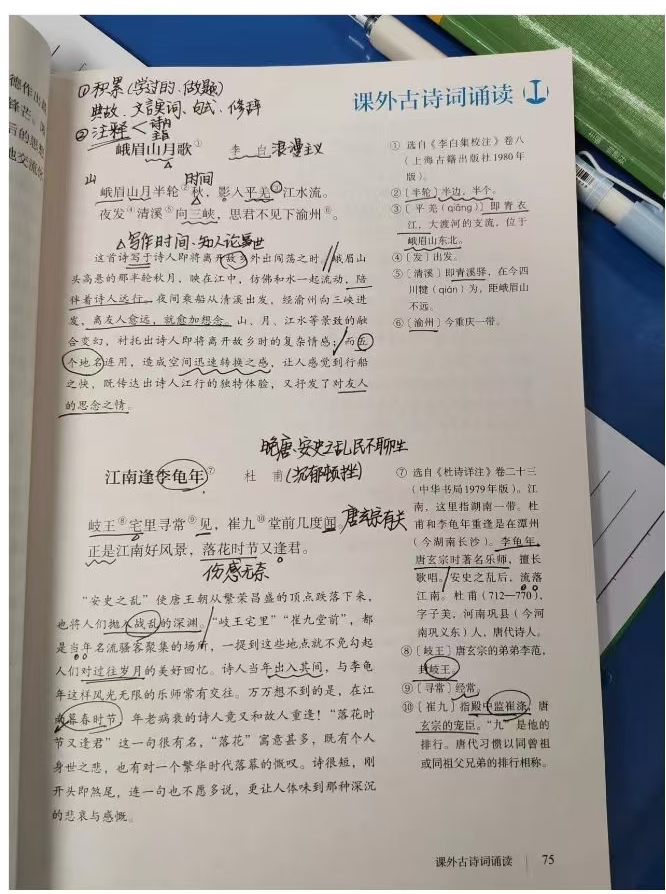 德作出
锋芒,
言的思想
地交流
①积累(学过的·做题)
典故、文言实词、句式、修辞
②注释<诗内 诗言
课外古诗词诵读
峨眉山月歌①
李 白 浪漫主义
山 时间
峨眉山月半轮②秋,影入平羌③江水流。
夜发④清溪⑤向三峡,思君不见下渝州⑥。
写作时间、知人论世
这首诗写于诗人即将离开故乡外出闯荡之时。峨眉山
头高悬的那半轮秋月,映在江中,仿佛和水一起流动,陪
伴着诗人远行。夜间乘船从清溪出发,经渝州向三峡进
发,离友人愈远,就愈加想念。山、月、江水等景致的融
合变幻,衬托出诗人即将离开故乡时的复杂情感;而五
个地名连用,造成空间迅速转换之感,让人感觉到行船
之快,既传达出诗人江行的独特体验,又抒发了对友人
的思念之情。
晚唐、安史之乱民不聊生
江南逢李龟年⑦
杜 甫 (沉郁顿挫)
岐王⑧宅里寻常⑨见,崔九⑩堂前几度闻。 唐玄宗有关
正是江南好风景,落花时节又逢君。
伤感无奈
“安史之乱”使唐王朝从繁荣昌盛的顶点跌落下来,
也将人们抛入战乱的深渊。“岐王宅里”“崔九堂前”,都
是当年名流骚客聚集的场所,一提到这些地点就不免勾起
人们对过往岁月的美好回忆。诗人当年出入其间,与李龟
年这样风光无限的乐师常有交往。万万想不到的是,在江
南暮春时节,年老病衰的诗人竟又和故人重逢!“落花时
节又逢君”这一句很有名,“落花”寓意甚多,既有个人
身世之悲,也有对一个繁华时代落幕的慨叹。诗很短,刚
开头即煞尾,连一句也不愿多说,更让人体味到那种深沉
的悲哀与感慨。
① 选自《李白集校注》卷八
(上海古籍出版社1980年
版)。
②〔半轮〕半边,半个。
③〔平羌(qiāng)〕即青衣
江,大渡河的支流,位于
峨眉山东北。
④〔发〕出发。
⑤〔清溪〕即青溪驿,在今四
川犍(qián)为,距峨眉山
不远。
⑥〔渝州〕今重庆一带。
⑦ 选自《杜诗详注》卷二十三
(中华书局1979年版)。江
南,这里指湖南一带。杜
甫和李龟年重逢是在潭州
(今湖南长沙)。李龟年,
唐玄宗时著名乐师,擅长
歌唱。安史之乱后,流落
江南。杜甫(712—770),
字子美,河南巩县(今河
南巩义东)人,唐代诗人。
⑧〔岐王〕唐玄宗的弟弟李范,
封岐王。
⑨〔寻常〕经常。
⑩〔崔九〕指殿中监崔涤,唐
玄宗的宠臣。“九”是他的
排行。唐代习惯以同曾祖
或同祖父兄弟的排行相称。
课外古诗词诵读 75